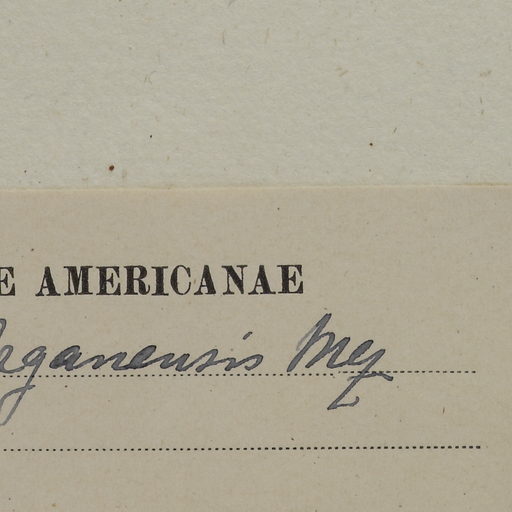 E AMERICANAE
eganensis Mez